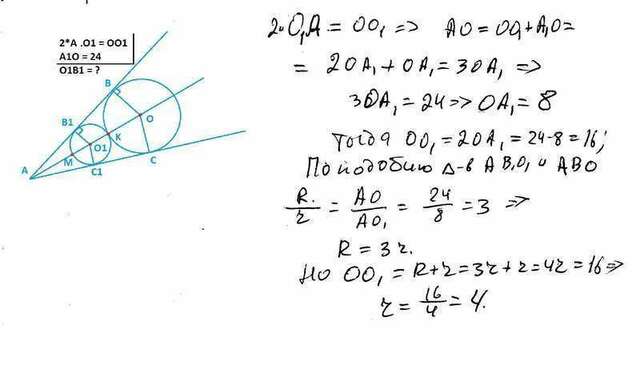 2*A .O1 = OO1
A1O = 24
O1B1 = ?
B
B1
O
K
O1
M
C
C1
A
2·O₁A = OO₁ => AO = OO₁ + A₁O =
= 2OA₁ + OA₁ = 3OA₁ =>
3OA₁ = 24 => OA₁ = 8
Тогда OO₁ = 2OA₁ = 24-8 = 16;
По подобию Δ-в AB₁O₁ и ABO
R/r = AO/AO₁ = 24/8 = 3 =>
R = 3r.
Но OO₁ = R + r = 3r + r = 4r = 16 =>
r = 16/4 = 4.